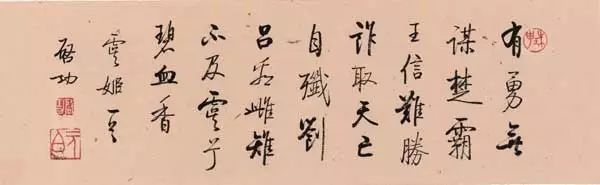 有勇無
謀楚霸
王信難勝
詐取天亡
自殲劉
呂雌雉
不及虞兮
碧血香
虞姬
啟功